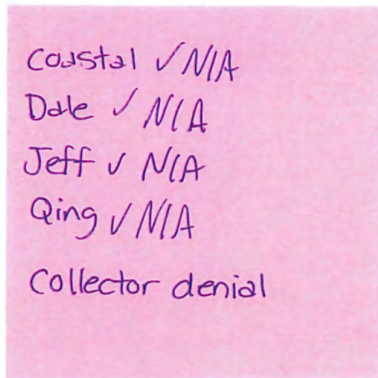 Coastal ✓ N/A
Dale ✓ N/A
Jeff ✓ N/A
Qing ✓ N/A
Collector denial